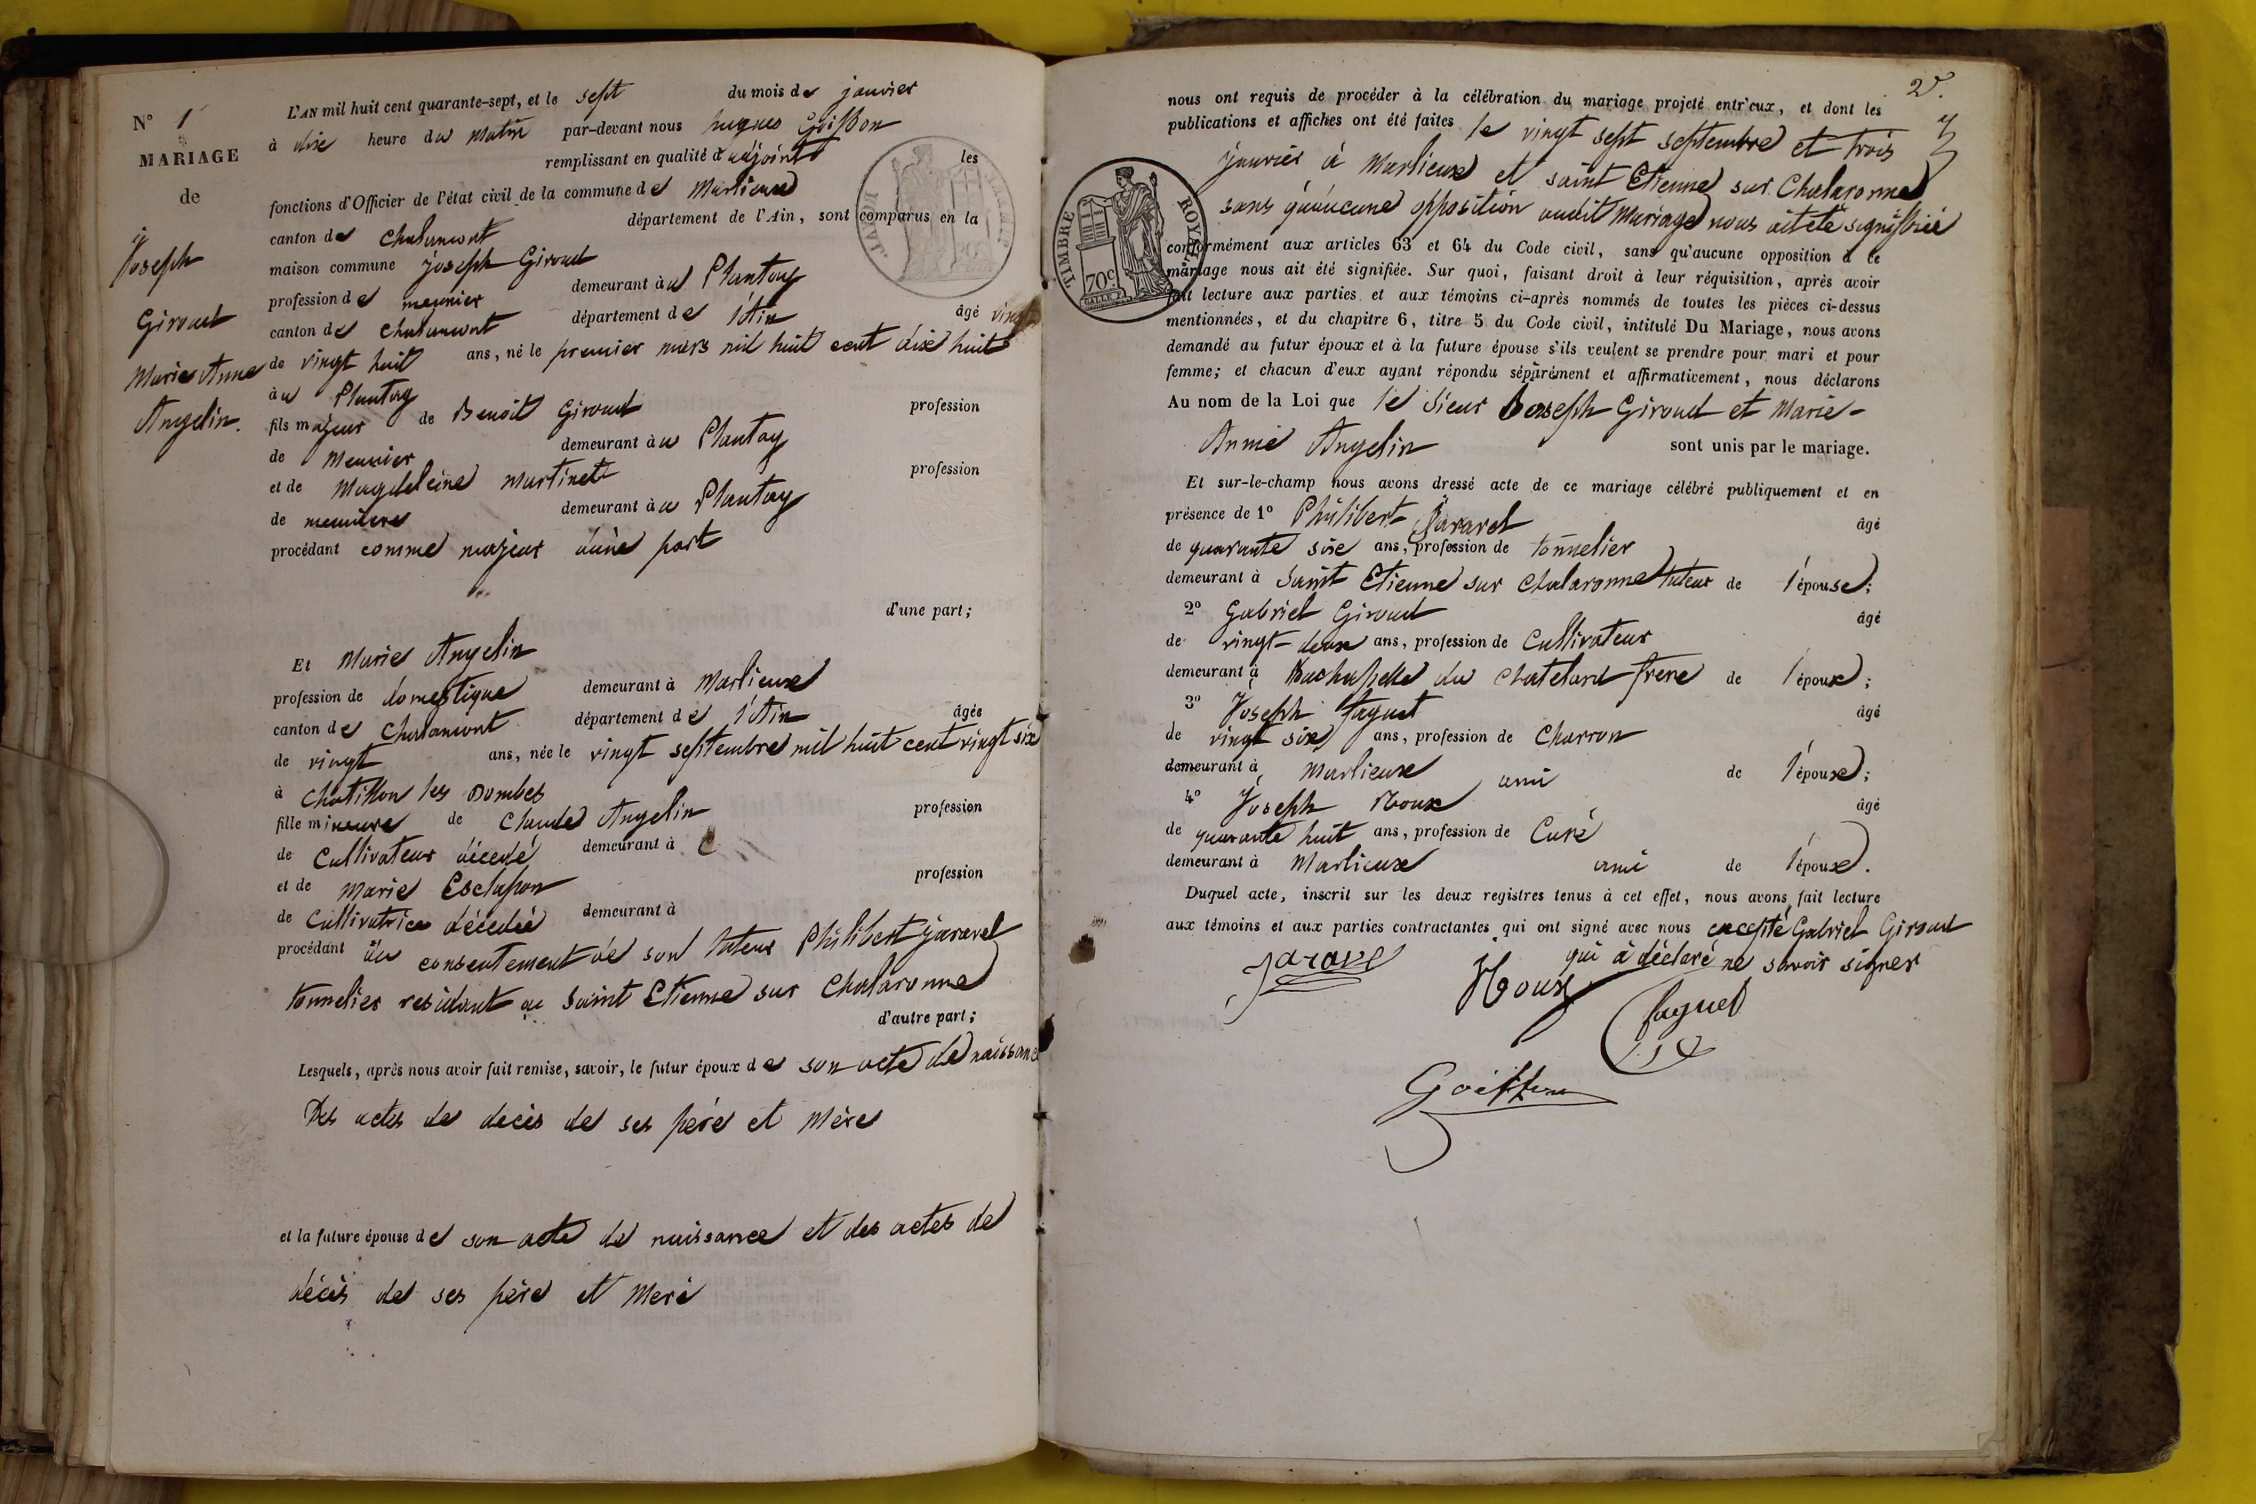 N° 1
MARIAGE
de
Joseph
Giroud
Marie Anne
Angelin.
L'AN mil huit cent quarante-sept, et le sept du mois de janvier
à dix heure du Matin par-devant nous hugues Goiffon
remplissant en qualité d'adjoint les
fonctions d'Officier de l'état civil de la commune de Marlieux
canton de Chalamont département de l'Ain, sont comparus en la
maison commune joseph Giroud
profession de meunier demeurant au Plantay
canton de Chalamont département de l'Ain âgé vingt
de vingt huit ans, né le premier mars mil huit cent dix huit
au Plantay
fils majeur de Benoit Giroud profession
de Meunier demeurant au Plantay
et de Magdeleine Martinet profession
de meunière demeurant au Plantay
procédant comme majeur d'une part
d'une part;
Et Marie Angelin
profession de domestique demeurant à Marlieux
canton de Chalamont département de l'Ain âgée
de vingt ans, née le vingt septembre mil huit cent vingt six
à Chatillon les Dombes
fille mineure de Claude Angelin profession
de Cultivateur décédé demeurant à
et de Marie Esclapon profession
de Cultivatrice décédée demeurant à
procédant du consentement de son tuteur Philibert jaravel
tonnelier residant au Saint Etienne sur Chalaronne
d'autre part;
Lesquels, après nous avoir fait remise, savoir, le futur époux de son acte de naissance
Des actes de decès de ses père et Mère
et la future épouse de son acte de naissance et des actes de
décès de ses père et Mère
2
nous ont requis de procéder à la célébration du mariage projeté entr'eux, et dont les
publications et affiches ont été faites le vingt sept septembre et trois
janvier à Marlieux et saint Etienne sur Chalaronne
sans qu'aucune opposition audit Mariage nous ait été signifiée
conformément aux articles 63 et 64 du Code civil, sans qu'aucune opposition à ce
mariage nous ait été signifiée. Sur quoi, faisant droit à leur réquisition, après avoir
fait lecture aux parties et aux témoins ci-après nommés de toutes les pièces ci-dessus
mentionnées, et du chapitre 6, titre 5 du Code civil, intitulé Du Mariage, nous avons
demandé au futur époux et à la future épouse s'ils veulent se prendre pour mari et pour
femme; et chacun d'eux ayant répondu séparément et affirmativement, nous déclarons
Au nom de la Loi que le Sieur Joseph Giroud et Marie-
Anne Angelin sont unis par le mariage.
Et sur-le-champ nous avons dressé acte de ce mariage célébré publiquement et en
présence de 1° Philibert Jaravel âgé
de quarante six ans, profession de tonnelier
demeurant à Saint Etienne sur Chalaronne tuteur de l'épouse;
2° Gabriel Giroud âgé
de vingt-deux ans, profession de Cultivateur
demeurant à du Chatelard frère de l'époux;
3° Joseph faguet âgé
de vingt six ans, profession de Charron
demeurant à Marlieux ami de l'époux;
4° Joseph Roux âgé
de quarante huit ans, profession de Curé
demeurant à Marlieux ami de l'époux.
Duquel acte, inscrit sur les deux registres tenus à cet effet, nous avons fait lecture
aux témoins et aux parties contractantes qui ont signé avec nous excepté Gabriel Giroud
qui à déclaré ne savoir signer
Jaravel
Roux
faguet
Goiffon
TIMBRE ROYAL
70 c